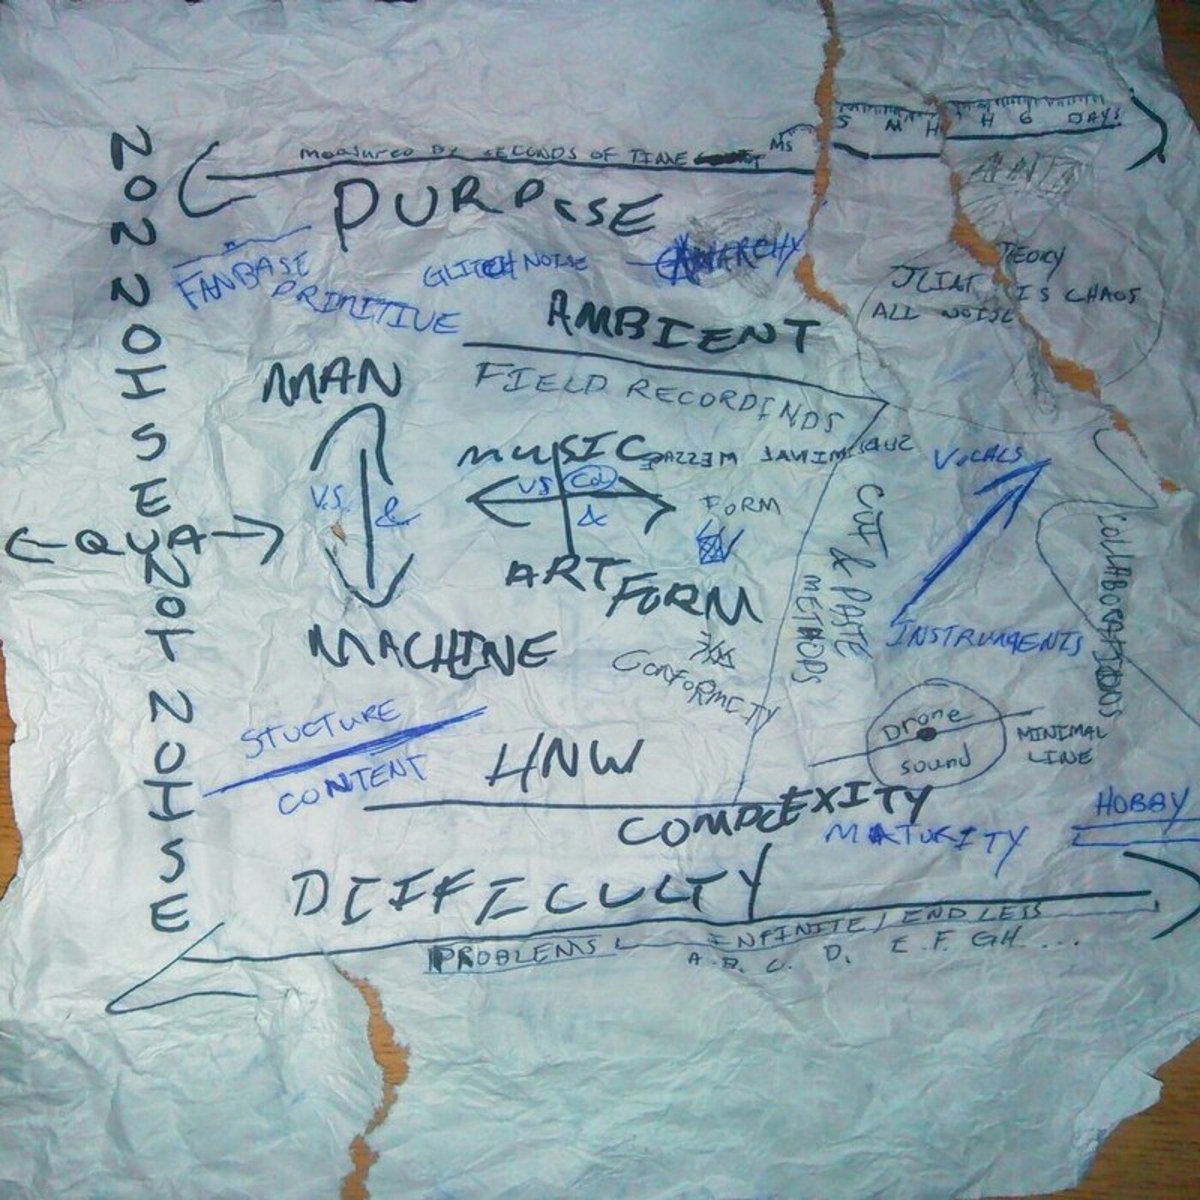 measured by SECONDS OF TIME
MS S M H H 6 DAYS
PURPOSE
FANBASE
PRIMITIVE
GLITCH NOISE
ANARCHY
AMBIENT
FIELD RECORDINDS
THEORY
JLIAT IS CHAOS
ALL NOISE
MAN
V.S. &
MACHINE
MUSIC
VS
&
ART FORM
SUBLIMINAL MESSAGE
FORM
CONFORMITY
CUT & PASTE
METHODS
VOCALS
INSTRUMENTS
COLLABORATIONS
QUA
STUCTURE
CONTENT
HNW
Drone
sound
MINIMAL
LINE
COMPLEXITY
MATURITY
HOBBY
DIFFICULTY
PROBLEMS INFINITE / ENDLESS
A. B. C. D. E. F. GH....